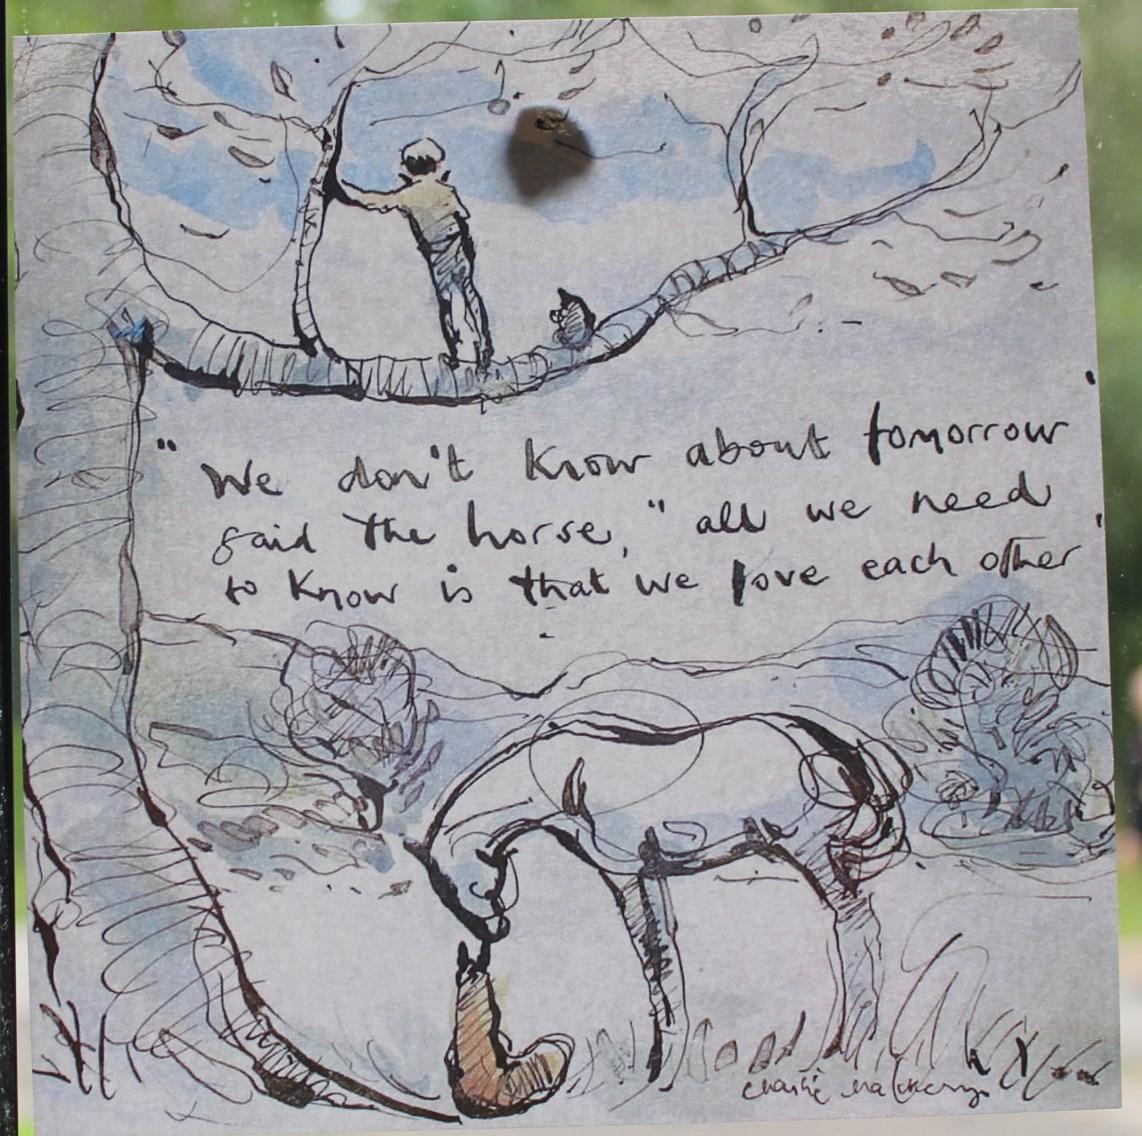 " We don't know about tomorrow
said the horse, " all we need
to know is that we love each other
charlie mackesy